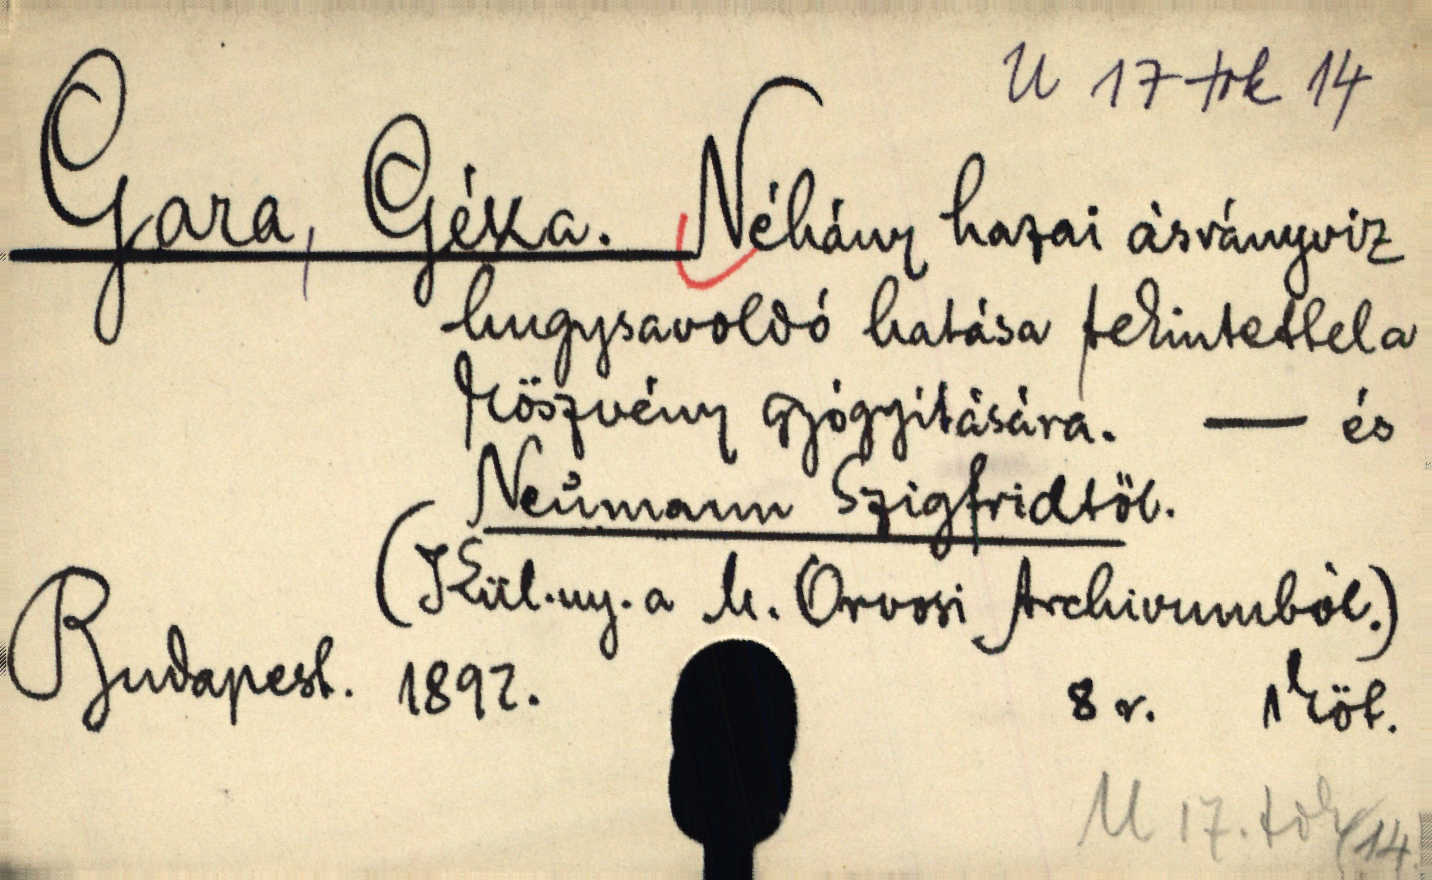 U 17 tok 14
Gara, Géza. Néhány hazai ásványviz
hugysavoldó hatása tekintettel a
köszvény gyógyitására. — és
Neumann Szigfridtöl.
(Kül.ny. a M. Orvosi Archivumból.)
Budapest. 1892. 8 r. 1 köt.
U 17. tok/14.